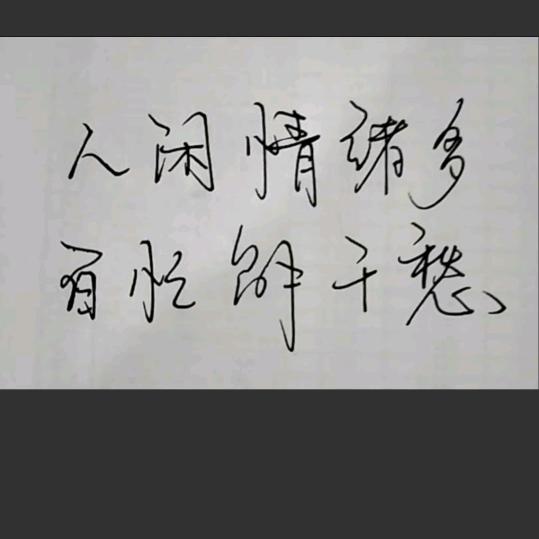 人闲情绪多
百忙解千愁